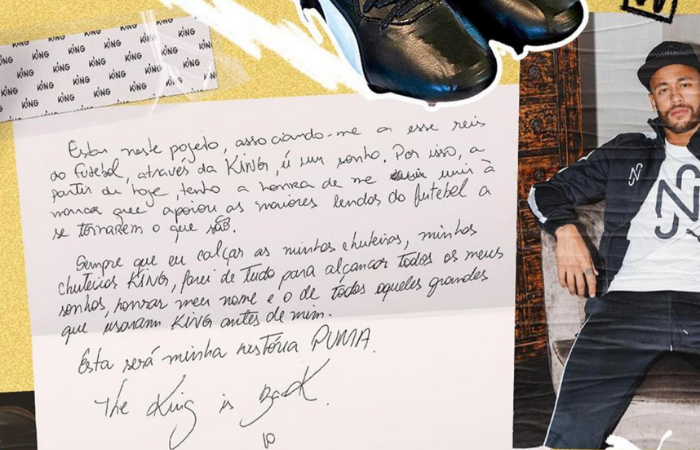 KING KING KING KING KING
KING KING KING KING KING
KING KING KING KING KING
Estar neste pojeto, associando-me a esse reis
do futebol, através da KING, é um sonho. Por isso, a
partir de hoje, tenho a honra de me unir à
marca que apoiou as maiores lendas do futebol a
se tornarem o que são.
Sempre que eu calçar as minhas chuteiras, minhas
chuteiras KING, farei de tudo para alcançar todos os meus
sonhos, honrar meu nome e o de todos aqueles grandes
que usaram KING antes de mim.
Esta será minha história PUMA.
The King is Back
10